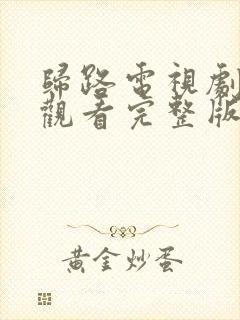 歸路電視劇
觀看完整版
黃金炒蛋